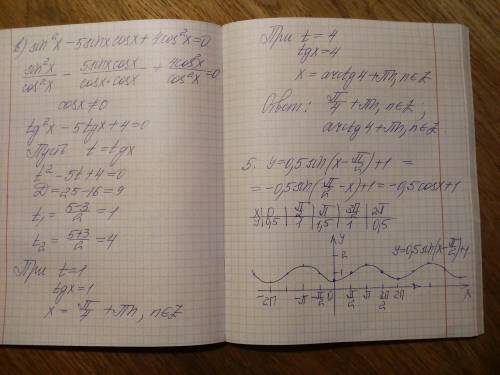 в) sin²x - 5sinxcosx + 4cos²x = 0
sin²x/cos²x - 5sinxcosx/cosx·cosx + 4cos²x/cos²x = 0
cosx ≠ 0
tg²x - 5tgx + 4 = 0
Пусть t = tgx
t² - 5t + 4 = 0
D = 25 - 16 = 9
t₁ = (5-3)/2 = 1
t₂ = (5+3)/2 = 4
При t = 1
tgx = 1
x = π/4 + πn, n∈Z
При t = 4
tgx = 4
x = arctg4 + πn, n∈Z
Ответ: π/4 + πn, n∈Z;
arctg4 + πn, n∈Z.
5. y = 0,5sin(x - π/2) + 1 =
= -0,5sin(π/2 - x) + 1 = -0,5cosx + 1
x | 0 | π/2 | π | 3π/2 | 2π
y | 0,5 | 1 | 1,5 | 1 | 0,5
y
2
1
y = 0,5sin(x - π/2) + 1
-2π -π -π/2 0 π/2 π 3π/2 2π x